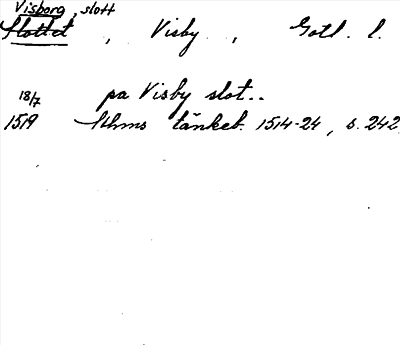 Visborg, slott
Slottet, Visby, Gotl. l.
18/7 pa Visby slot..
1519 Sthms tänkeb. 1514-24, s. 242